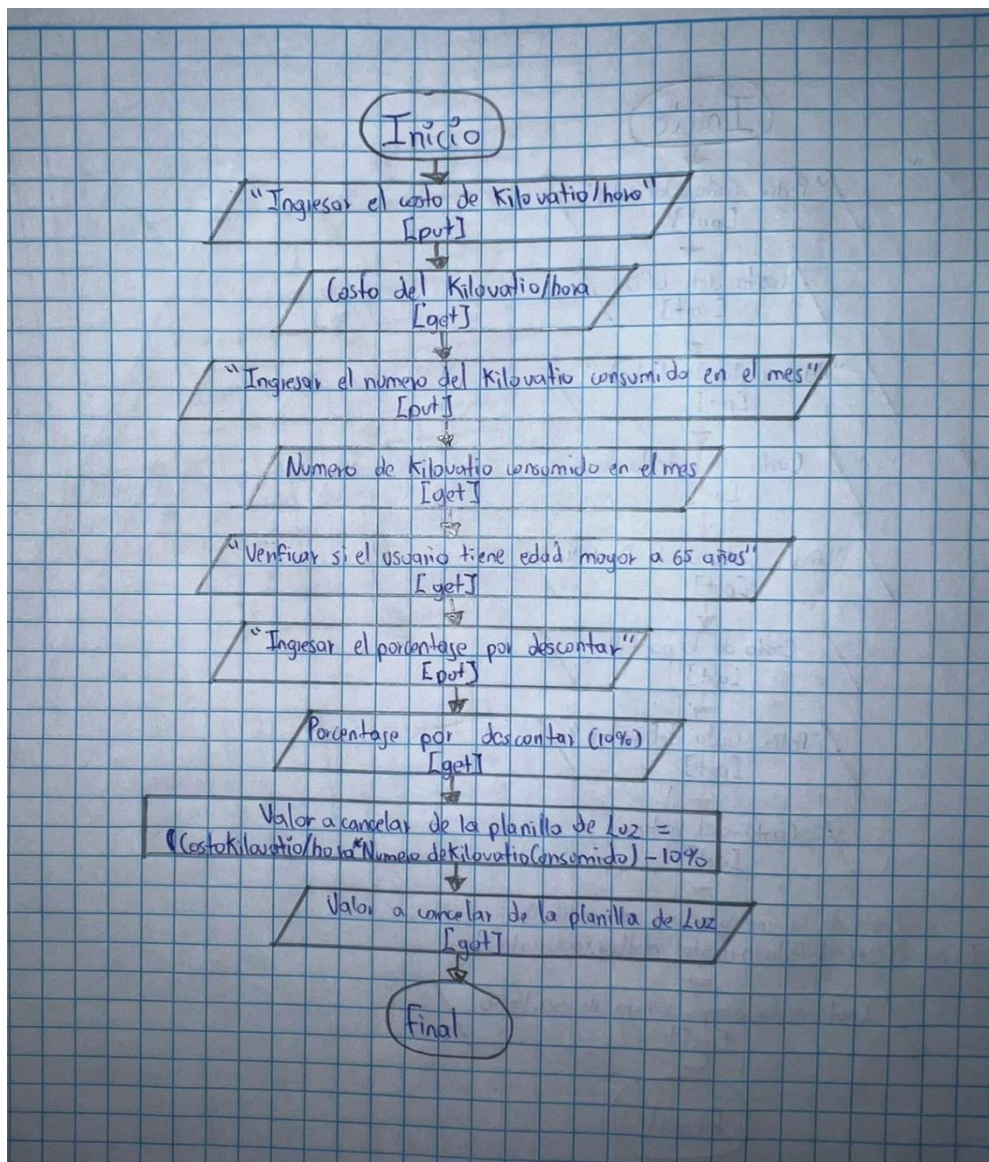 Inicio
"Ingresar el costo de Kilovatio/hora"
[put]
Costo del Kilovatio/hora
[get]
"Ingresar el número del Kilovatio consumido en el mes"
[put]
Numero de Kilovatio consumido en el mes
[get]
"Verificar si el usuario tiene edad mayor a 65 años"
[get]
"Ingresar el porcentase por descontar"
[put]
Porcentase por descontar (10%)
[get]
Valor a cancelar de la planilla de Luz =
(CostoKilovatio/hora*Numero deKilovatioConsumido) - 10%
Valor a cancelar de la planilla de Luz
[get]
Final